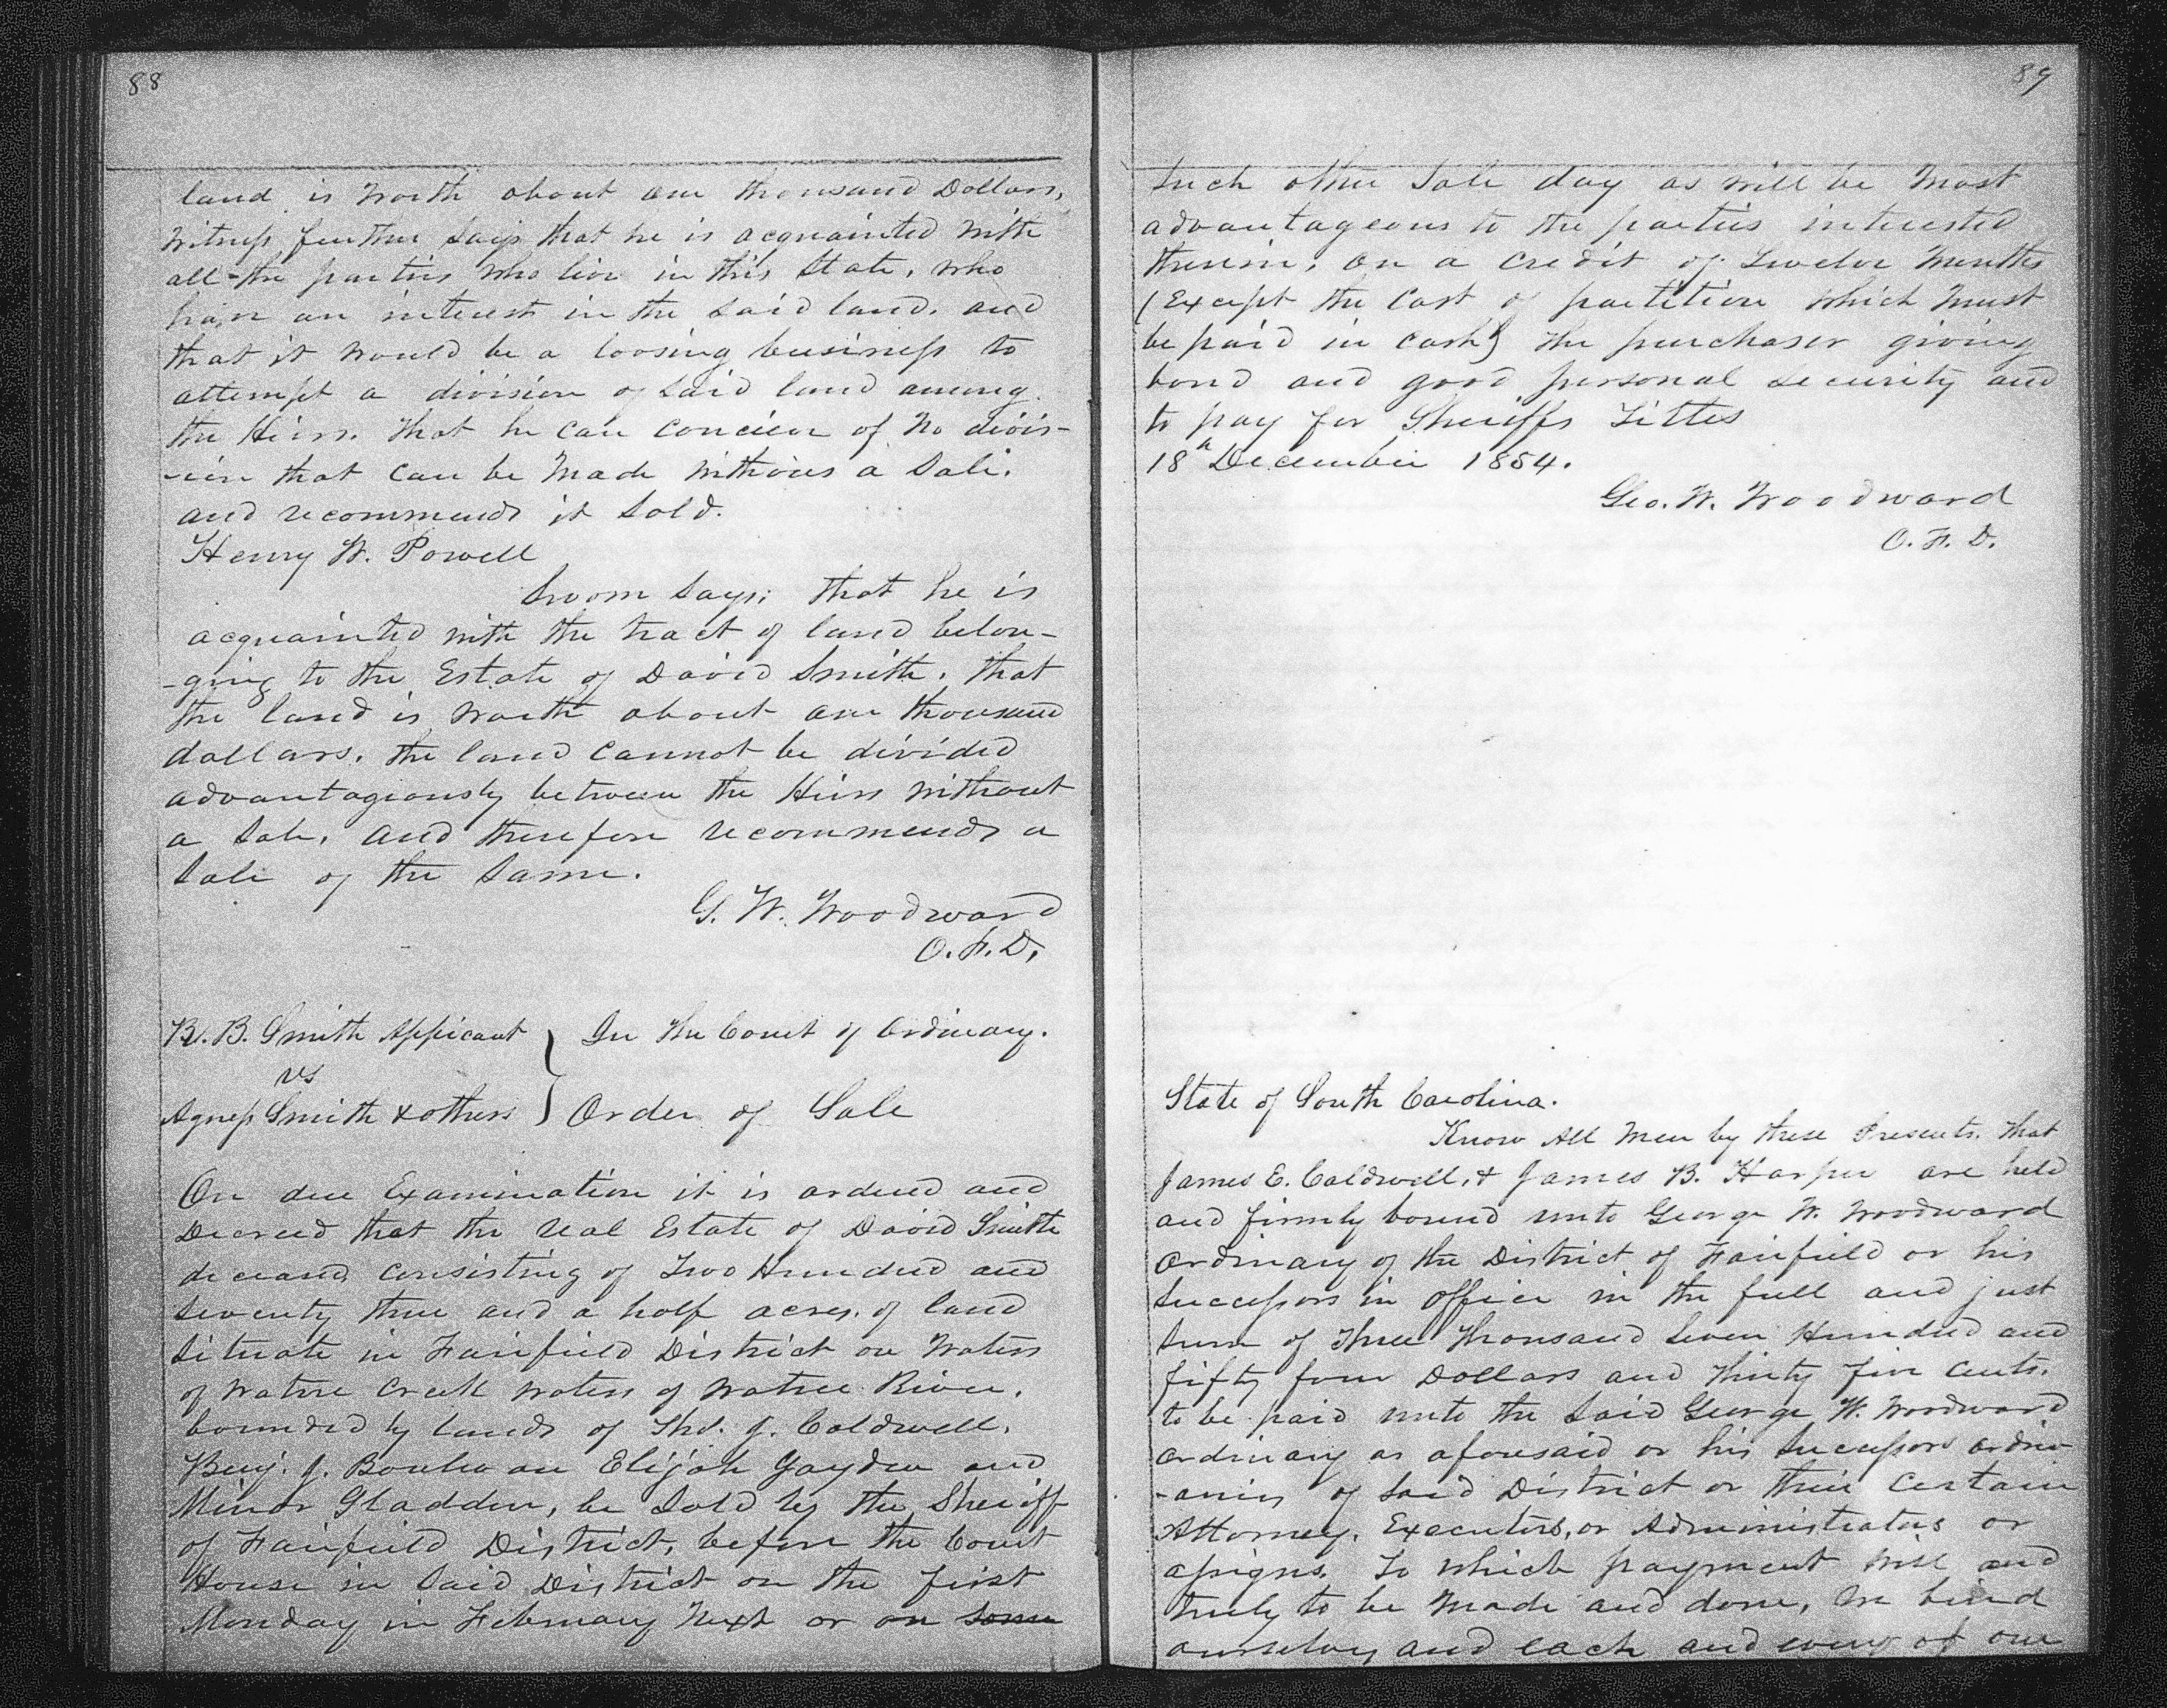 88
land is worth about one thousand Dollars,
Witness further says that he is acquainted with
all the parties who live in this State, who
have an interest in the said land. and
that it would be a loosing business to
attempt a division of said land among
the Heirs. That he can concieve of no divis-
-ion that can be made without a Sale.
and recommends it sold.
Henry W. Powell
Sworn says; that he is
acquainted with the tract of land belon-
-ging to the Estate of David Smith. that
the land is worth about one thousand
dollars. the land cannot be divided
advantagiously between the Heirs without
a Sale, and therefore recommends a
Sale of the same.
G. W. Woodward
O. F. D.
B. Smith Appicant } In the Court of Ordinary.
vs
Agness Smith & others } Order of Sale
On due Examination it is ordered and
Decreed that the real Estate of David Smith
deceased consisting of Two Hundred and
seventy three and a half acres of land
situate in Fairfield District on waters
of Wateree Creek waters of Wateree River.
bounded by lands of Thos. J. Caldwell,
Benj. J. Elijah Gayden and
Minor Gladden, be sold by the Sheriff
of Fairfield District, before the Court
House in said District on the first
Monday in February next or on some
89
such other Sale day as will be most
advantageous to the parties interested
therein, on a credit of Twelve Months
(Except the Cost of partition which must
be paid in cash) the purchaser giving
bond and good personal security and
to pay for Sheriffs Titles
18th December 1854.
Geo. W. Woodward
O. F. D.
State of South Carolina.
Know All Men by these Presents. that
James E. Caldwell, & James B. Harper are held
and firmly bound unto George W. Woodward
Ordinary of the District of Fairfield or his
successors in office in the full and just
sum of Three Thousand Seven Hundred and
fifty four Dollars and Thirty five cents.
to be paid unto the said George W. Woodward
Ordinary as aforesaid or his successors ordin-
-aries of said District or their certain
Attorney, Executors, or Administrators or
assigns. To which payment well and
truly to be made and done, We bind
ourselves and each and every of our